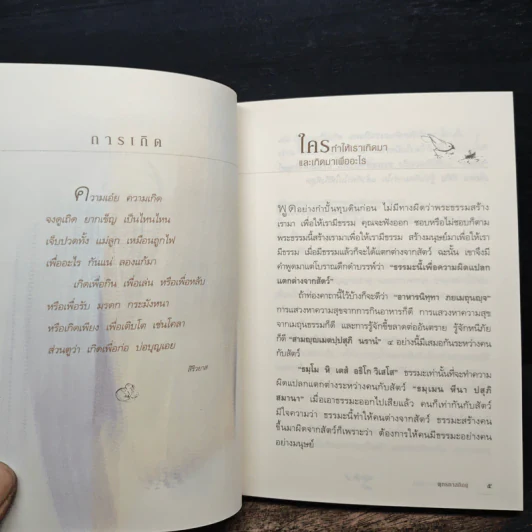 การเกิด
ความเอ๋ย ความเกิด
จงดูเถิด ยากเข็ญ เป็นไหนไหน
เจ็บปวดทั้ง แม่ลูก เหมือนถูกไฟ
เพื่ออะไร กันแน่ ลองแก้มา
เกิดเพื่อกิน เพื่อเล่น หรือเพื่อหลับ
หรือเพื่อรับ มรดก กระมังหนา
หรือเกิดเพียง เพื่อเติบโต เช่นโคลา
ส่วนตูว่า เกิดเพื่อก่อ บ่อบุญเอย
สิริวยาส
ใครทำให้เราเกิดมา
และเกิดมาเพื่ออะไร
พูดอย่างกำปั้นทุบดินก่อน ไม่มีทางผิดว่าพระธรรมสร้าง
เรามา เพื่อให้เรามีธรรม คุณจะฟังออก ชอบหรือไม่ชอบก็ตาม
พระธรรมนี้สร้างเรามาเพื่อให้เรามีธรรม สร้างมนุษย์มาเพื่อให้เรา
มีธรรม เมื่อมีธรรมแล้วก็จะได้แตกต่างจากสัตว์ ฉะนั้น เขาจึงมี
คำพูดมาแต่โบราณดึกดำบรรพ์ว่า "ธรรมะนี้เพื่อความผิดแปลก
แตกต่างจากสัตว์"
ถ้าท่องคาถานี้ไว้บ้างก็จะดีว่า "อาหารนิทฺทา ภยเมถุนญฺจ"
การแสวงหาความสุขจากการกินอาหารก็ดี การแสวงหาความสุข
จากเมถุนธรรมก็ดี และการรู้จักขี้ขลาดต่ออันตราย รู้จักหนีภัย
ก็ดี "สามญฺญเมตปฺปสุภิ นรานํ" ๔ อย่างนี้มีเสมอกันระหว่างคน
กับสัตว์
"ธมฺโม หิ เตสํ อธิโก วิเสโส" ธรรมะเท่านั้นที่จะทำความ
ผิดแปลกแตกต่างระหว่างคนกับสัตว์ "ธมฺเมน หีนา ปสุภิ
สมานา" เมื่อเอาธรรมะออกไปเสียแล้ว คนก็เท่ากันกับสัตว์
มีใจความว่า ธรรมะนี้ทำให้คนต่างจากสัตว์ ธรรมะสร้างคน
ขึ้นมาผิดจากสัตว์ก็เพราะว่า ต้องการให้คนมีธรรมะอย่างคน
อย่างมนุษย์
๕